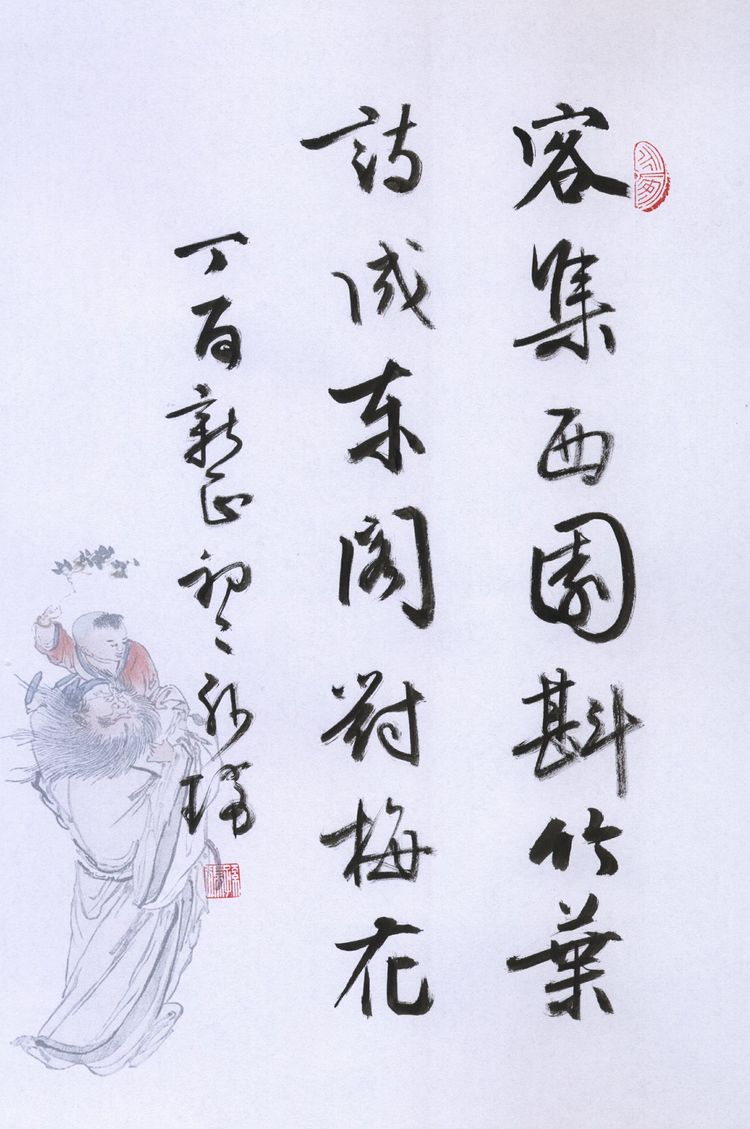 客集西園斟竹葉
詩成東閣對梅花
丁酉新正初二